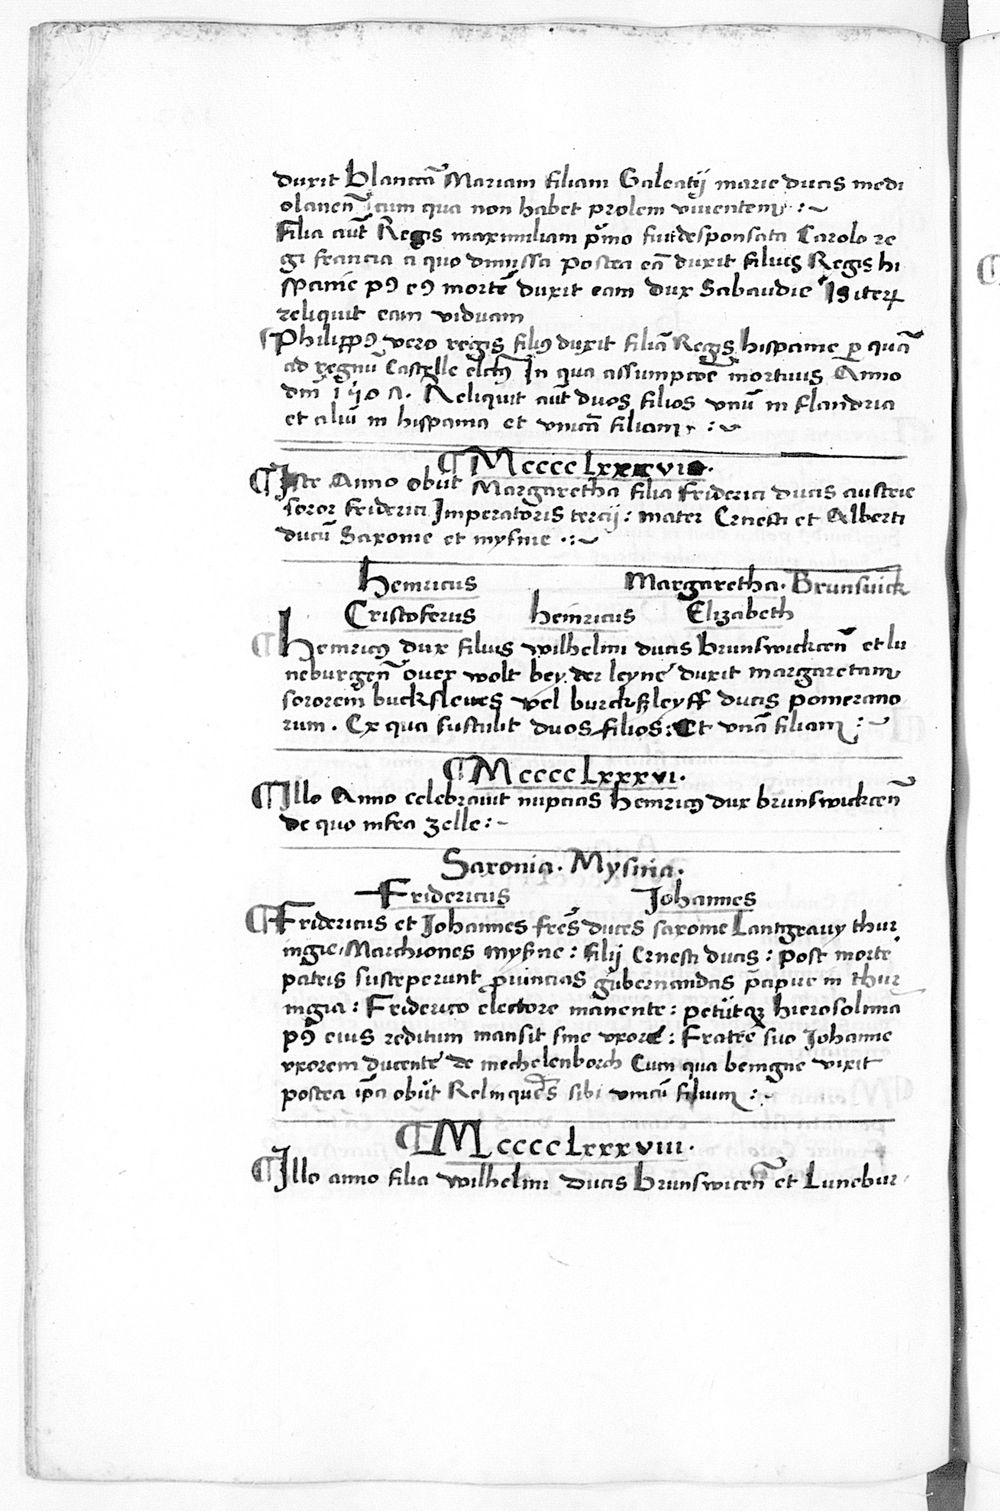 duxit Blancā Mariam filiam Galeatij marie ducis medi
olanen̄ cum qua non habet prolem viventem :~
Filia aūt Regis maximiliani pͥmo fuit desponsata Carolo re
gi francia a quo dimissa postea eā duxit filius Regis hi
spanie pꝰ eꝰ mortē duxit eam dux Sabaudie Is iterꝝ
reliquit eam viduam
Philippꝰ vero regis filiꝰ duxit filiā Regis hispanie ꝑ quā
ad regnū Castelle elctꝰ In qua assumpcōe mortuus Anno
dnī Reliquit aūt duos filios vnū in flandria
et aliū in hispania et vnicā filiam :~
¶ Mcccc Lxxxvi.
¶ Iste Anno obiit Margaretha filia Friderici ducis austrie
soror friderici Imperatoris tercij: mater Ernesti et Alberti
ducū Saxonie et mysnie .:~
Heinricus Margaretha. Brunsuick
Cristoferus heinricus Elizabeth
¶ Heinricꝰ dux filius wilhelmi ducis brunswickcen̄ et lu
neburgen̄ over wolt bey der leyne duxit margaretam
sororem buckslewes vel burckßleyff ducis pomerano
rum. Ex qua sustulit duos filios: Et vnā filiam :~
¶ Mcccc Lxxxvi.
¶ Illo Anno celebravit nupcias heinricꝰ dux brunswickcen̄
de quo infra zelle :~
Saxonia. Mysnia.
Fridericus Johannes
¶ Fridericus et Johannes frēs duces saxonie Lantgravy thur
ingie. Marchiones mysne: filij Ernesti ducis: post mortē
patris susceperunt ꝓuincias gubernandas p̄cipue in thur
ingia: Friderico electore manente: petijtqꝫ hierosolima
pꝰ eius reditum mansit sine vxore: Fratre suo Johanne
vxorem ducente de mechelenborch Cum qua benigne vixit
postea ip̄a obijt Relinquēs sibi vnicū filium :~
¶ Mcccc Lxxxviii.
¶ Illo anno filia wilhelmi ducis brunswicen̄ et Lunebur